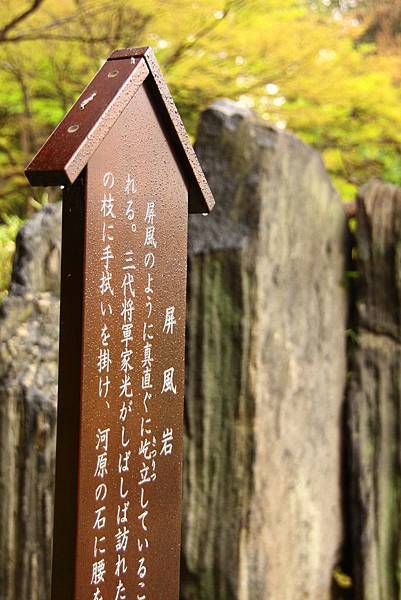 屏風岩
屏風のように真直ぐに屹立しているこ
れる。三代将軍家光がしばしば訪れた
の枝に手拭いを掛け、河原の石に腰を